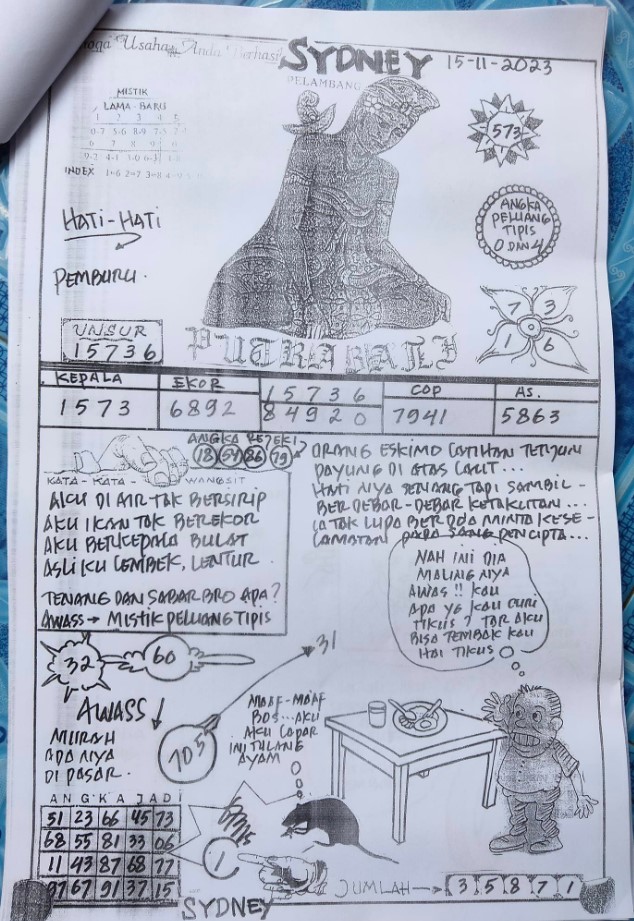 Usaha Anda Berhasil
SYDNEY
15-11-2023
PELAMBANG
MISTIK
LAMA - BARU
1 2 3 4 5
0-7 5-6 8-9
6 7 8 9
9-2 4-1
INDEX 1=6 2=7 3=8
573
ANGKA
PELUANG
TIPIS
0 DAN 4
HATI-HATI
PEMBURU.
UNSUR
15736
7 3
1 6
PUTRA BALI
KEPALA EKOR 15736 COP AS.
1573 6892 84920 7941 5863
ANGKA REZEKI
18 54 86 79
KATA - KATA - WANGSIT
AKU DI AIR TAK BERSIRIP
AKU IKAN TAK BEREKOR
AKU BERKEPALA BULAT
ASLIKU LEMBEK, LENTUR.
TENANG DAN SABAR BRO APA?
AWASS → MISTIK PELUANG TIPIS
ORANG ESKIMO LATIHAN
DAYUNG DI ATAS LAUT...
HATI NIYA SENANG TAPI SAMBIL -
BER DEBAR-DEBAR KETAKUTAN...
IA TAK LUPA BERDOA MINTA KESE -
LAMATAN PADA SANG PENCIPTA...
NAH INI DIA
MALING NIYA
AWAS !! KAU
APA YG KAU CURI
TIKUS ? TAR AKU
BISA TEMBAK KAU
HAI TIKUS
32 60
31
AWASS !
MURAH
ADA NIYA
DI PASAR.
705
MAAF-MAAF
BOS...AKU
AKU LAPAR
INI TULANG
AYAM
ANGKA JADI
51 23 66 45 73
68 55 81 33 06
11 43 87 68 77
97 67 91 37 15
1
JUMLAH → 3 5 8 7 1
SYDNEY